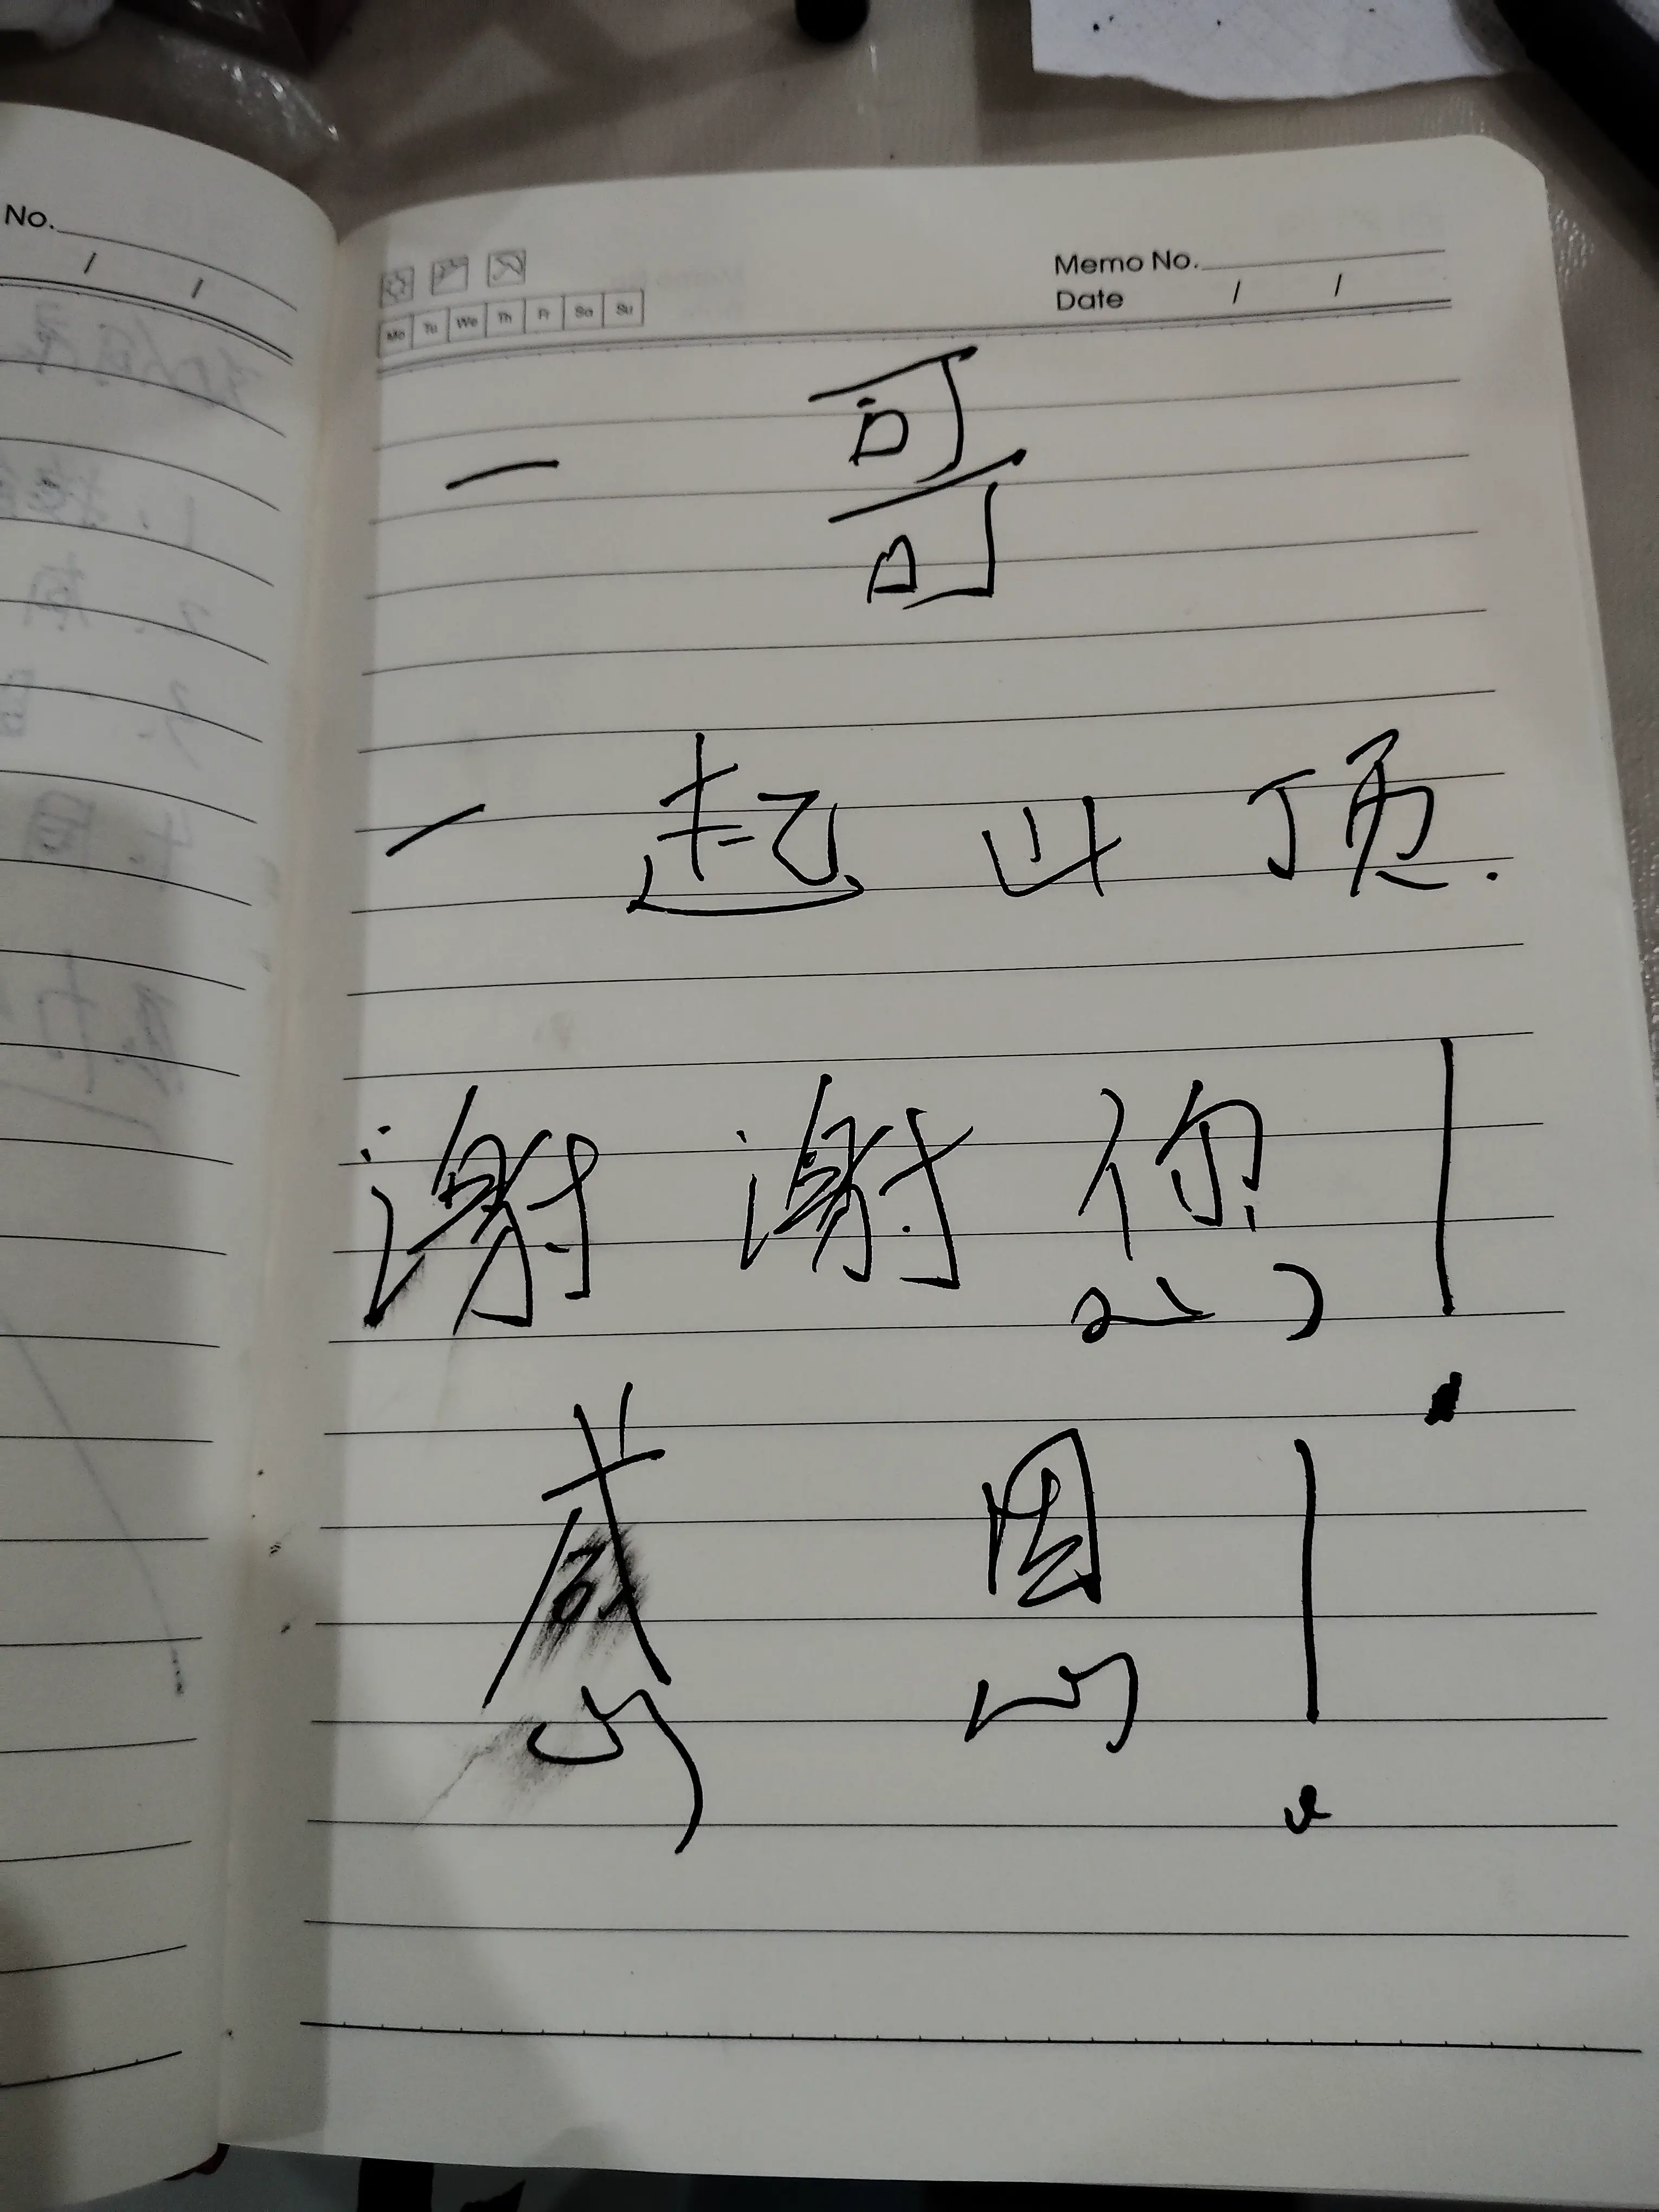 No.
/ /
Memo No.
Date / /
Mo Tu We Th Fr Sa Su
一 哥
一 起 山 顶.
谢 谢 您!
感 恩!